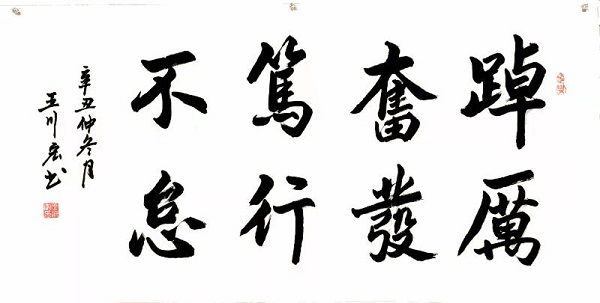 踔厲
奮發
篤行
不怠
辛丑仲冬月
王川宏书